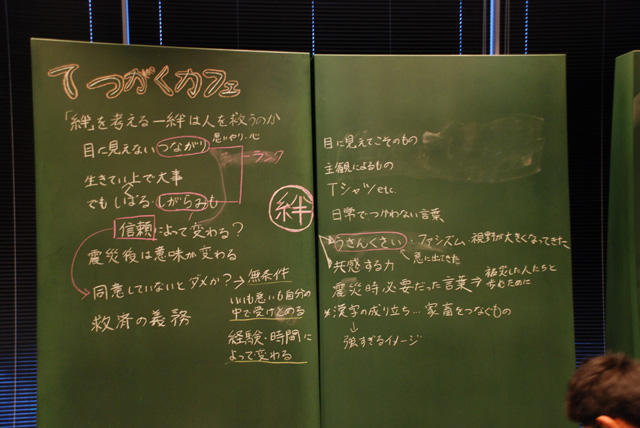 てつがくカフェ
「絆」を考える―絆は人を救うのか
目に見えない つながり 思いやり・心
生きてい上で大事
でも しばる・しがらみも
信頼 によって変わる?
震災後は意味が変わる
同意していないとダメか? → 無条件
いいも悪いも自分の
中で受けとめる
救済の義務
経験・時間に
よって変わる
絆
目に見えてこそのもの
主観によるもの
Tシャツ etc.
日学でつかわない言葉
うさんくさい・ファシズム・視野が大きくなってきた
共感する力 急に出てきた
震災時 必要だった言葉? 被災した人たちと
歩むために
※漢字の成り立ち… 家畜をつなぐもの
↓
強すぎるイメージ